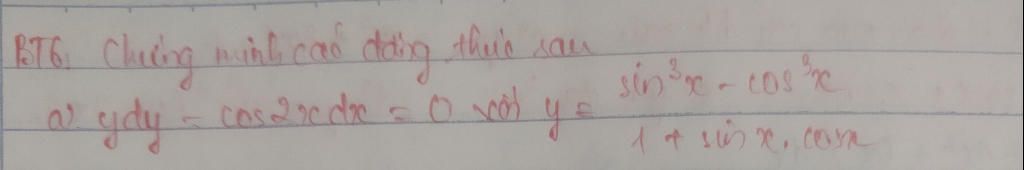 BT6. Chứng minh các đẳng thức sau
a) ydy - cos2xdx = 0 với y = (sin³x - cos³x) / (1 + sin x. cosx)